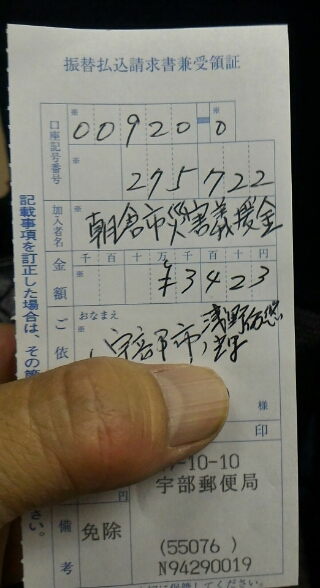 振替払込請求書兼受領証
口座記号番号
※ 00920-0 ※
※ 275722
加入者名
※ 朝倉市災害義援金
金額
千 百 十 万 千 百 十 円
¥3423
ご依
おなまえ
※
宇部市
浅野
様
印
-10-10
宇部郵便局
円
備考
免除
(55076 )
N94290019
記載事項を訂正した場合は、その
さい。